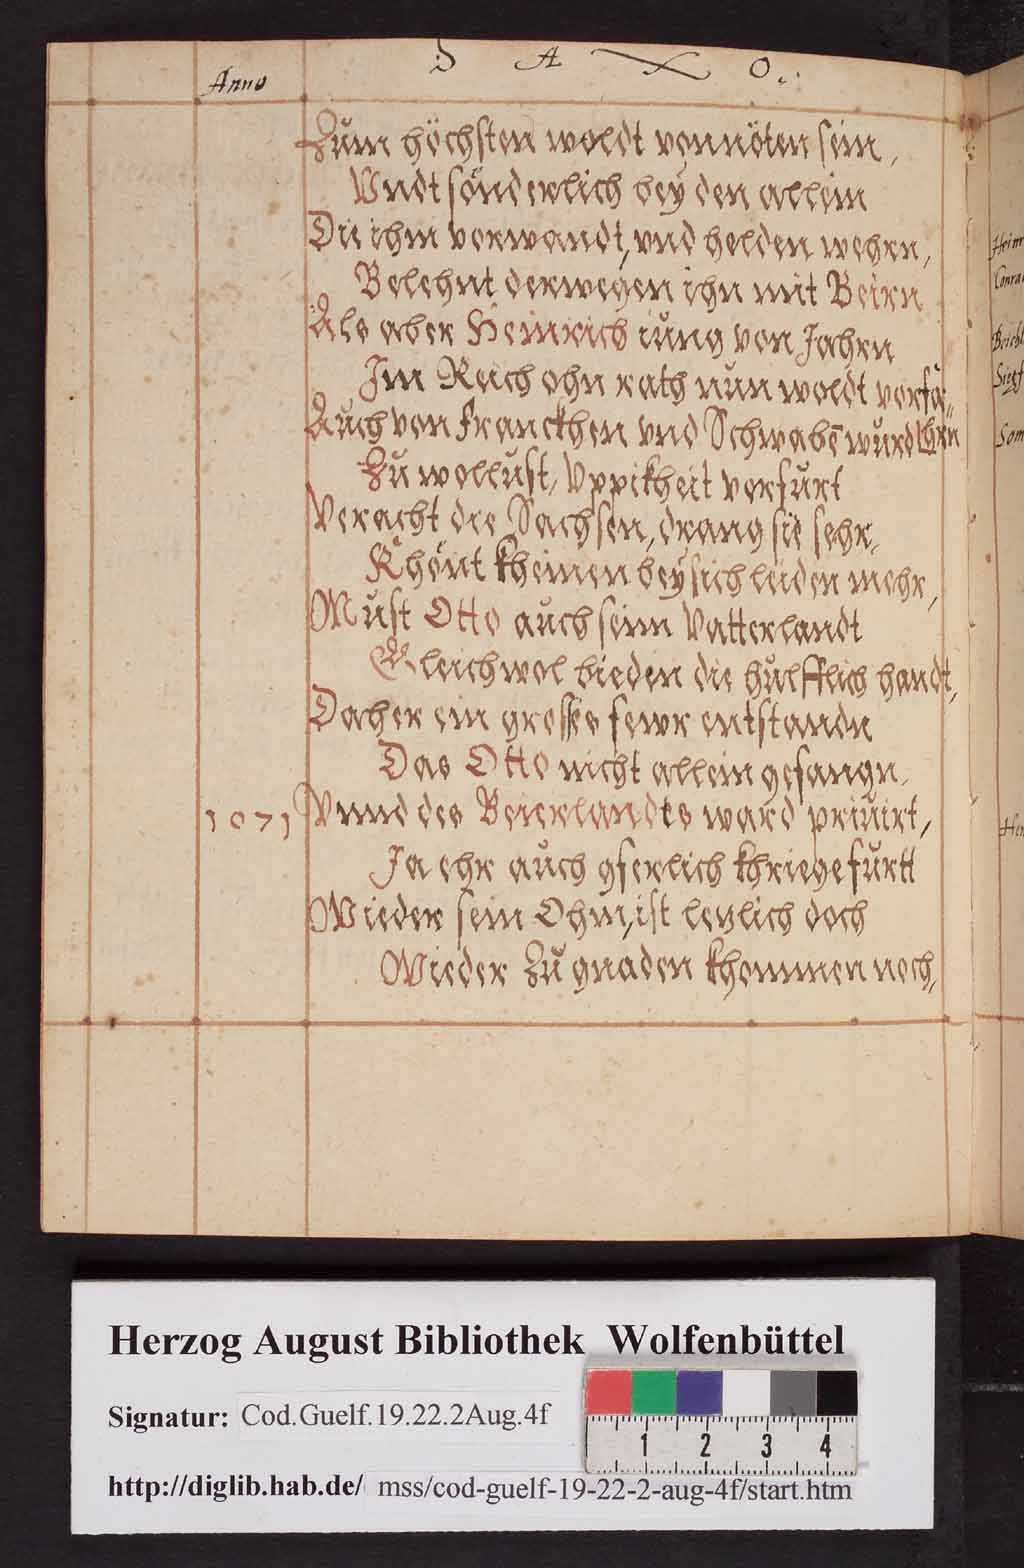 S A X O.
Anno
Zům höchsten woldt vonnöten sein,
Vndt sönderlich beÿ den allein
Die ihm vorwandt, vnd helden wehrn,
Belehnt derwegen ihn mit Beirn
Als aber Heinrich iůng von Jahrn
Im Reich ohn rath nůn woldt vorfa=
Aůch von Franckhen vnd Schwabē wůrd hrn
Zů wollůst, Vppikheit verfůrt
Veracht die Sachsen, drang sie sehr,
Khönt kheinen beÿ sich leiden mehr,
Můst Otto aůch seim Vatterlandt
Gleichwol bieden die hůlfflich handt,
Daher ein grosses fewr entstandn
Das Otto nicht allein gefangn,
1071 Vnnd des Beierlandts ward priůirt,
Ja ehr aůch gferlich khriege fůrtt
Wieder sein Ohm, ist letzlich doch
Wieder Zů gnaden khommen noch,
Heinr
Conra
Sigf
Som
Hen
Herzog August Bibliothek Wolfenbüttel
Signatur: Cod.Guelf.19.22.2Aug.4f
http://diglib.hab.de/ mss/cod-guelf-19-22-2-aug-4f/start.htm
1 2 3 4